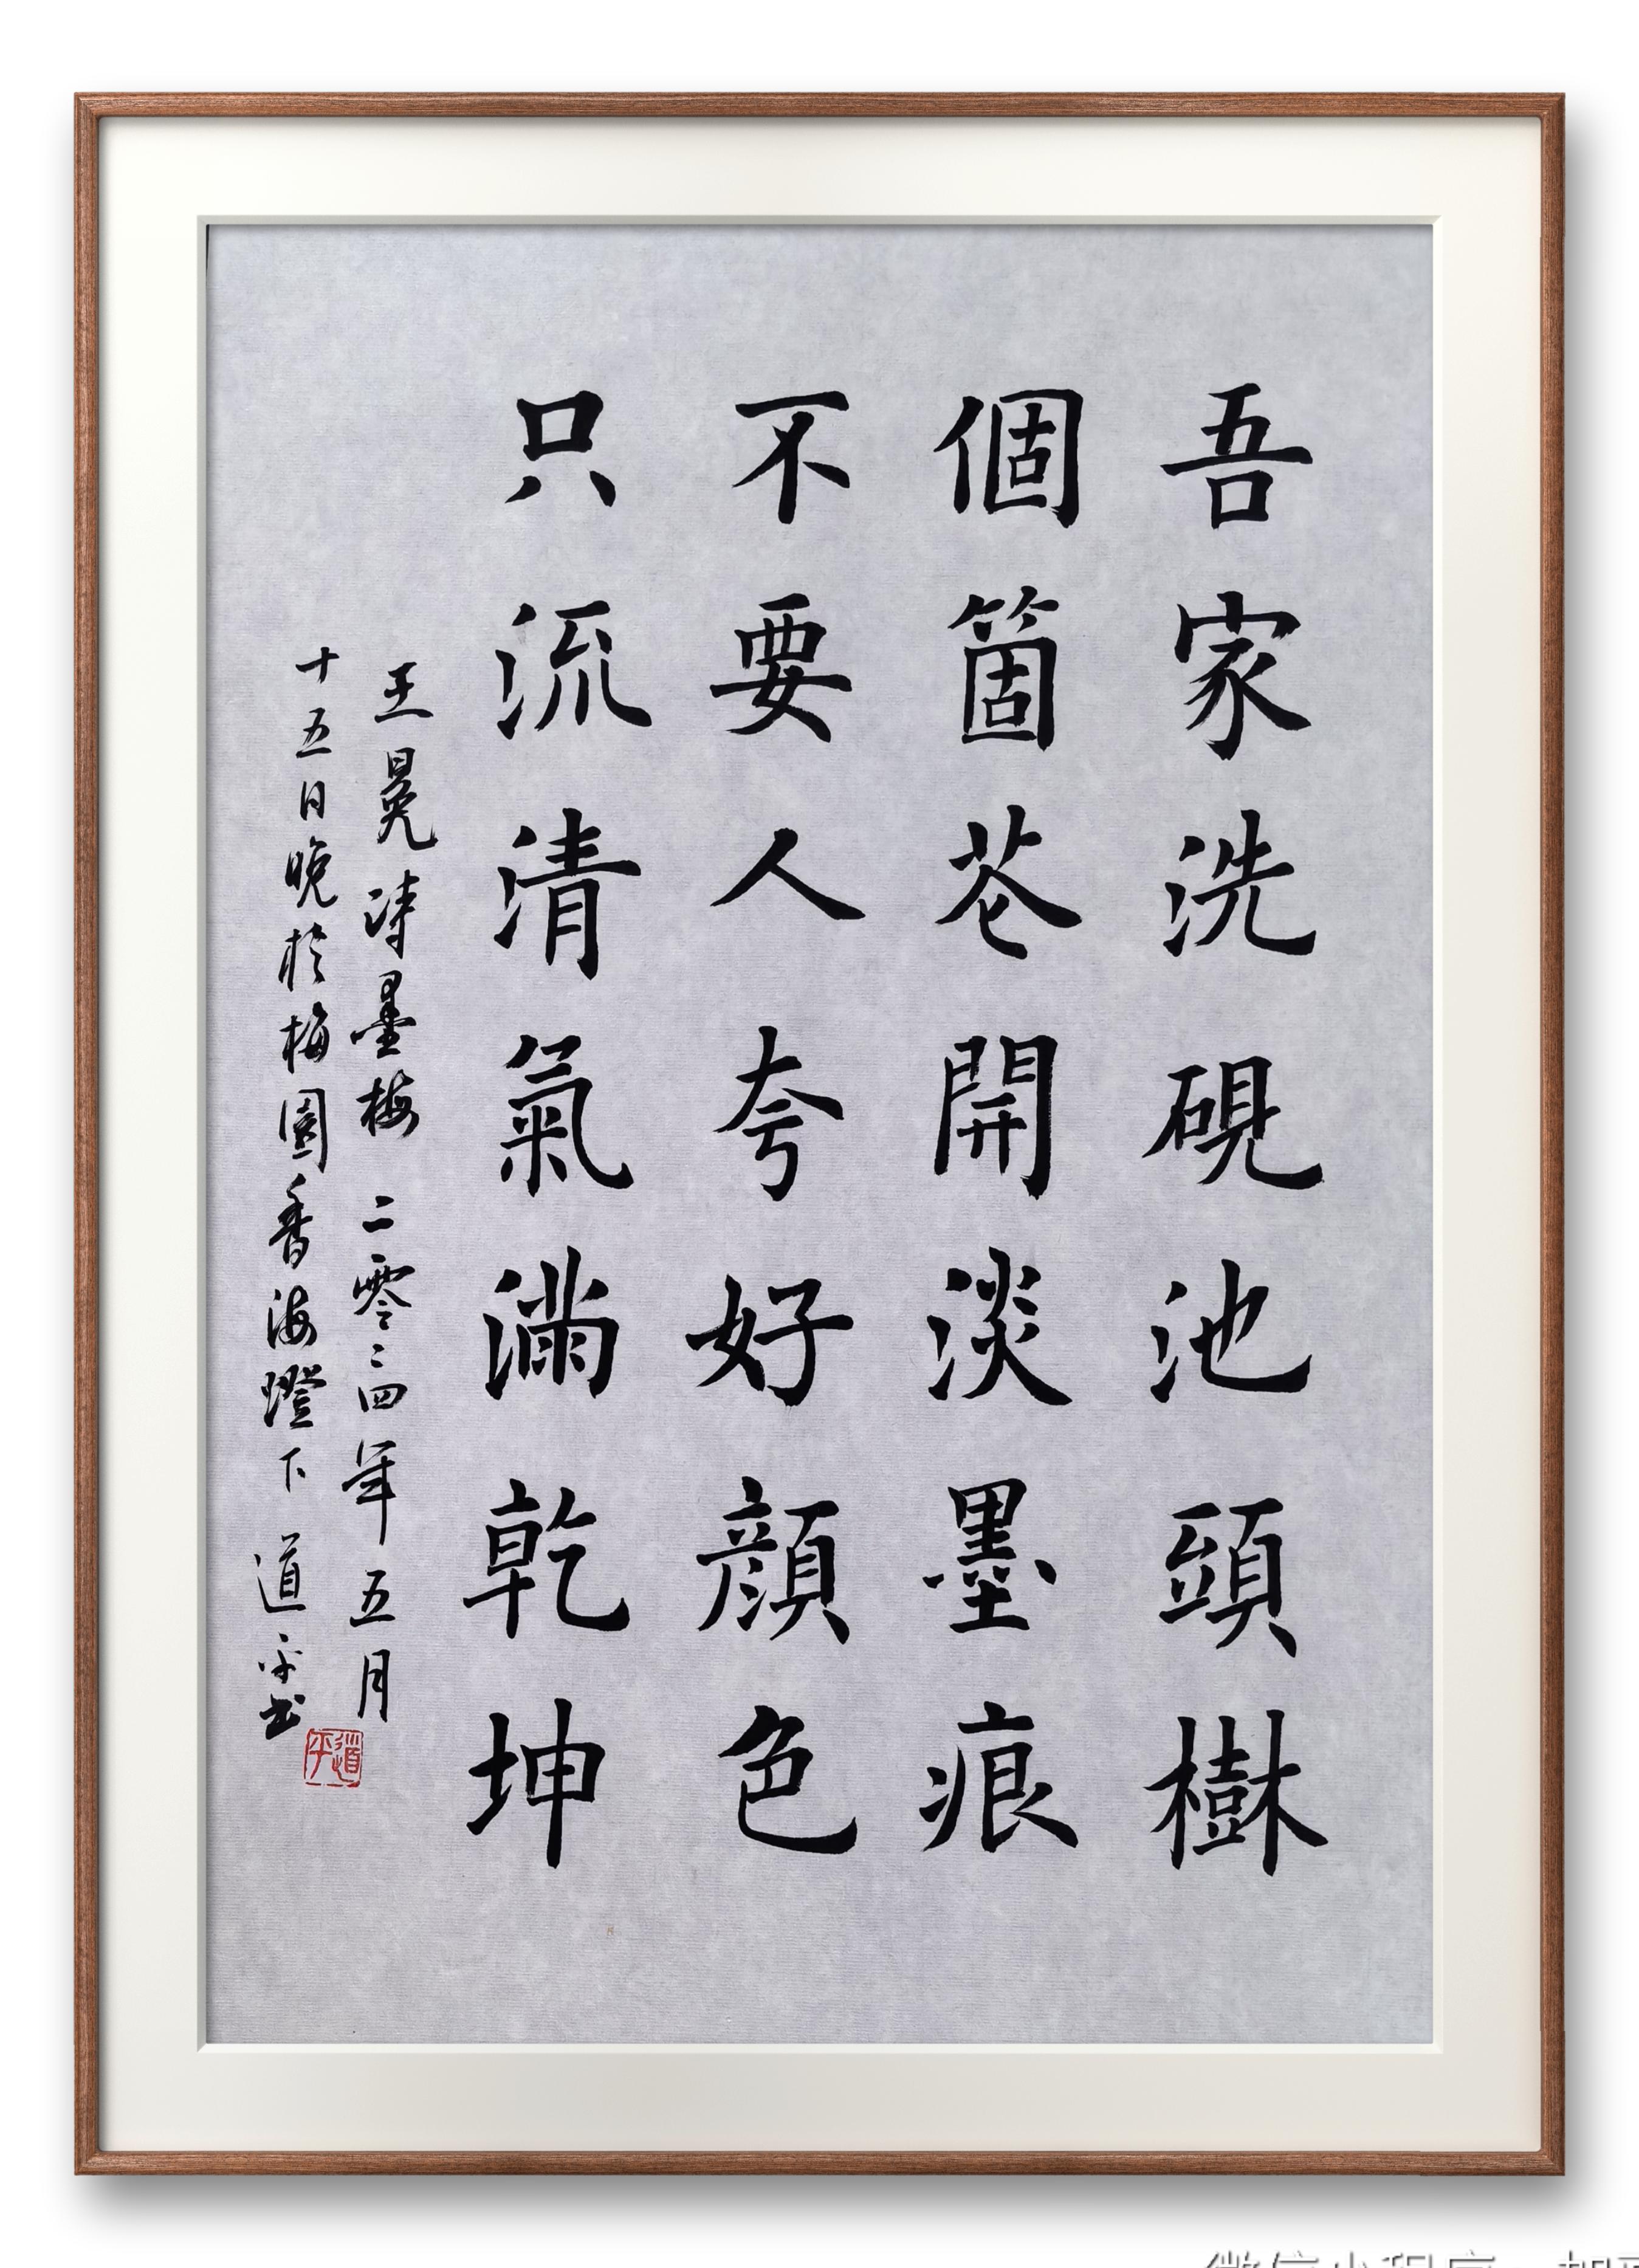 吾家洗硯池頭樹
個箇花開淡墨痕
不要人夸好顔色
只流清氣滿乾坤
王冕詩墨梅 二零二四年五月
十五日晚於梅園香海燈下 道平书
道平
微信小程序